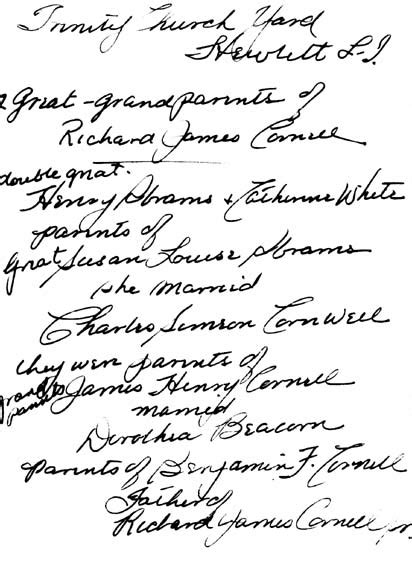 Trinity Church Yard
Hewlett L-I.
2 Great-grandparents of
Richard James Cornell
double great.
Henry Abrams & Catherine White
parents of
Great Susan Louise Abrams
she married
Charles Simeon Cornwell
they were parents of
grand parents James Henry Cornell
married
Dorothea Beacom
Parents of Benjamin F. Cornell
Father of
Richard James Cornell